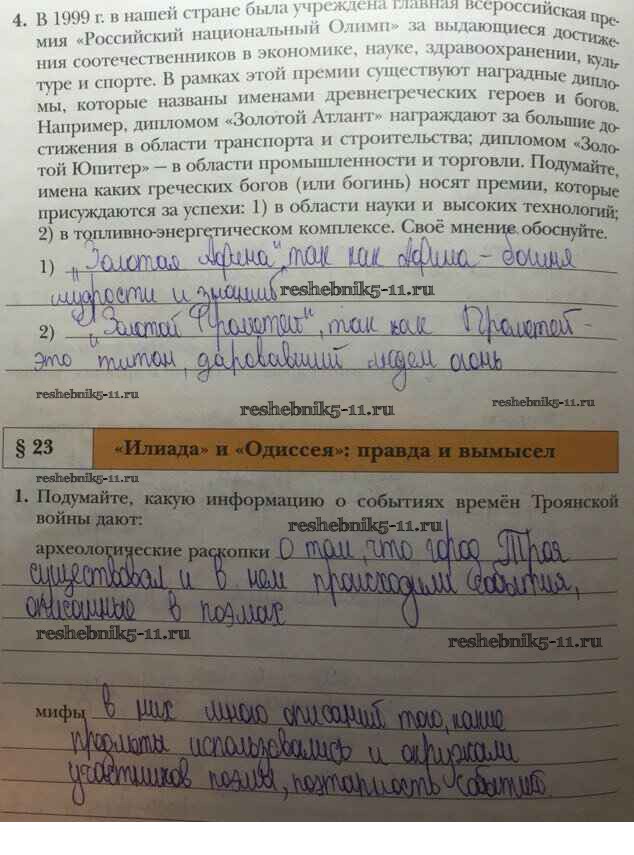 4. В 1999 г. в нашей стране была учреждена главная всероссийская пре-
мия «Российский национальный Олимп» за выдающиеся достиже-
ния соотечественников в экономике, науке, здравоохранении, куль-
туре и спорте. В рамках этой премии существуют наградные дипло-
мы, которые названы именами древнегреческих героев и богов.
Например, дипломом «Золотой Атлант» награждают за большие до-
стижения в области транспорта и строительства; дипломом «Золо-
той Юпитер» – в области промышленности и торговли. Подумайте,
имена каких греческих богов (или богинь) носят премии, которые
присуждаются за успехи: 1) в области науки и высоких технологий;
2) в топливно-энергетическом комплексе. Своё мнение обоснуйте.
1) „Золотая Афина", так как Афина – богиня
мудрости и знаний
reshebnik5-11.ru
2) „Золотой Прометей", так как Прометей -
это титан, даровавший людям огонь
reshebnik5-11.ru
reshebnik5-11.ru
reshebnik5-11.ru
§ 23 «Илиада» и «Одиссея»: правда и вымысел
reshebnik5-11.ru
1. Подумайте, какую информацию о событиях времён Троянской
войны дают:
reshebnik5-11.ru
археологические раскопки о том, что город Троя
существовал и в нем происходили события,
описанные в поэмах
reshebnik5-11.ru
reshebnik5-11.ru
мифы в них много описаний того, какие
предметы использовались и окружали
участников поэмы, поэтапность событий